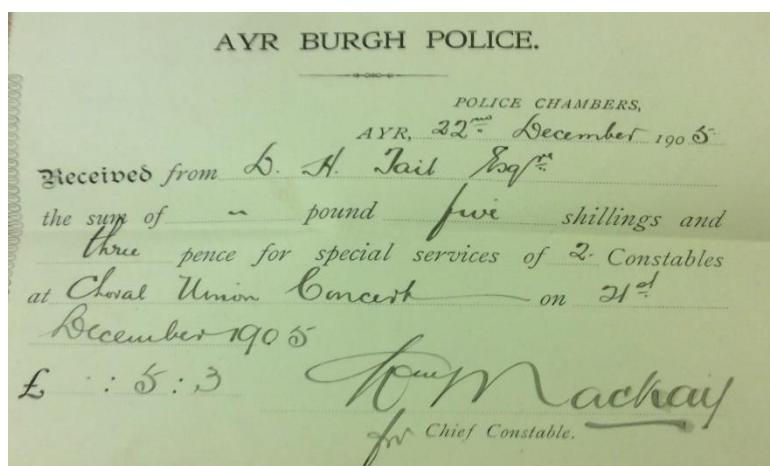 AYR BURGH POLICE.
POLICE CHAMBERS,
AYR, 22nd December 1905
Received from D. H. Tait Esqre
the sum of " pound five shillings and
three pence for special services of 2 Constables
at Choral Union Concert on 21st
December 1905
£ " : 5 : 3
Mackay
for Chief Constable.